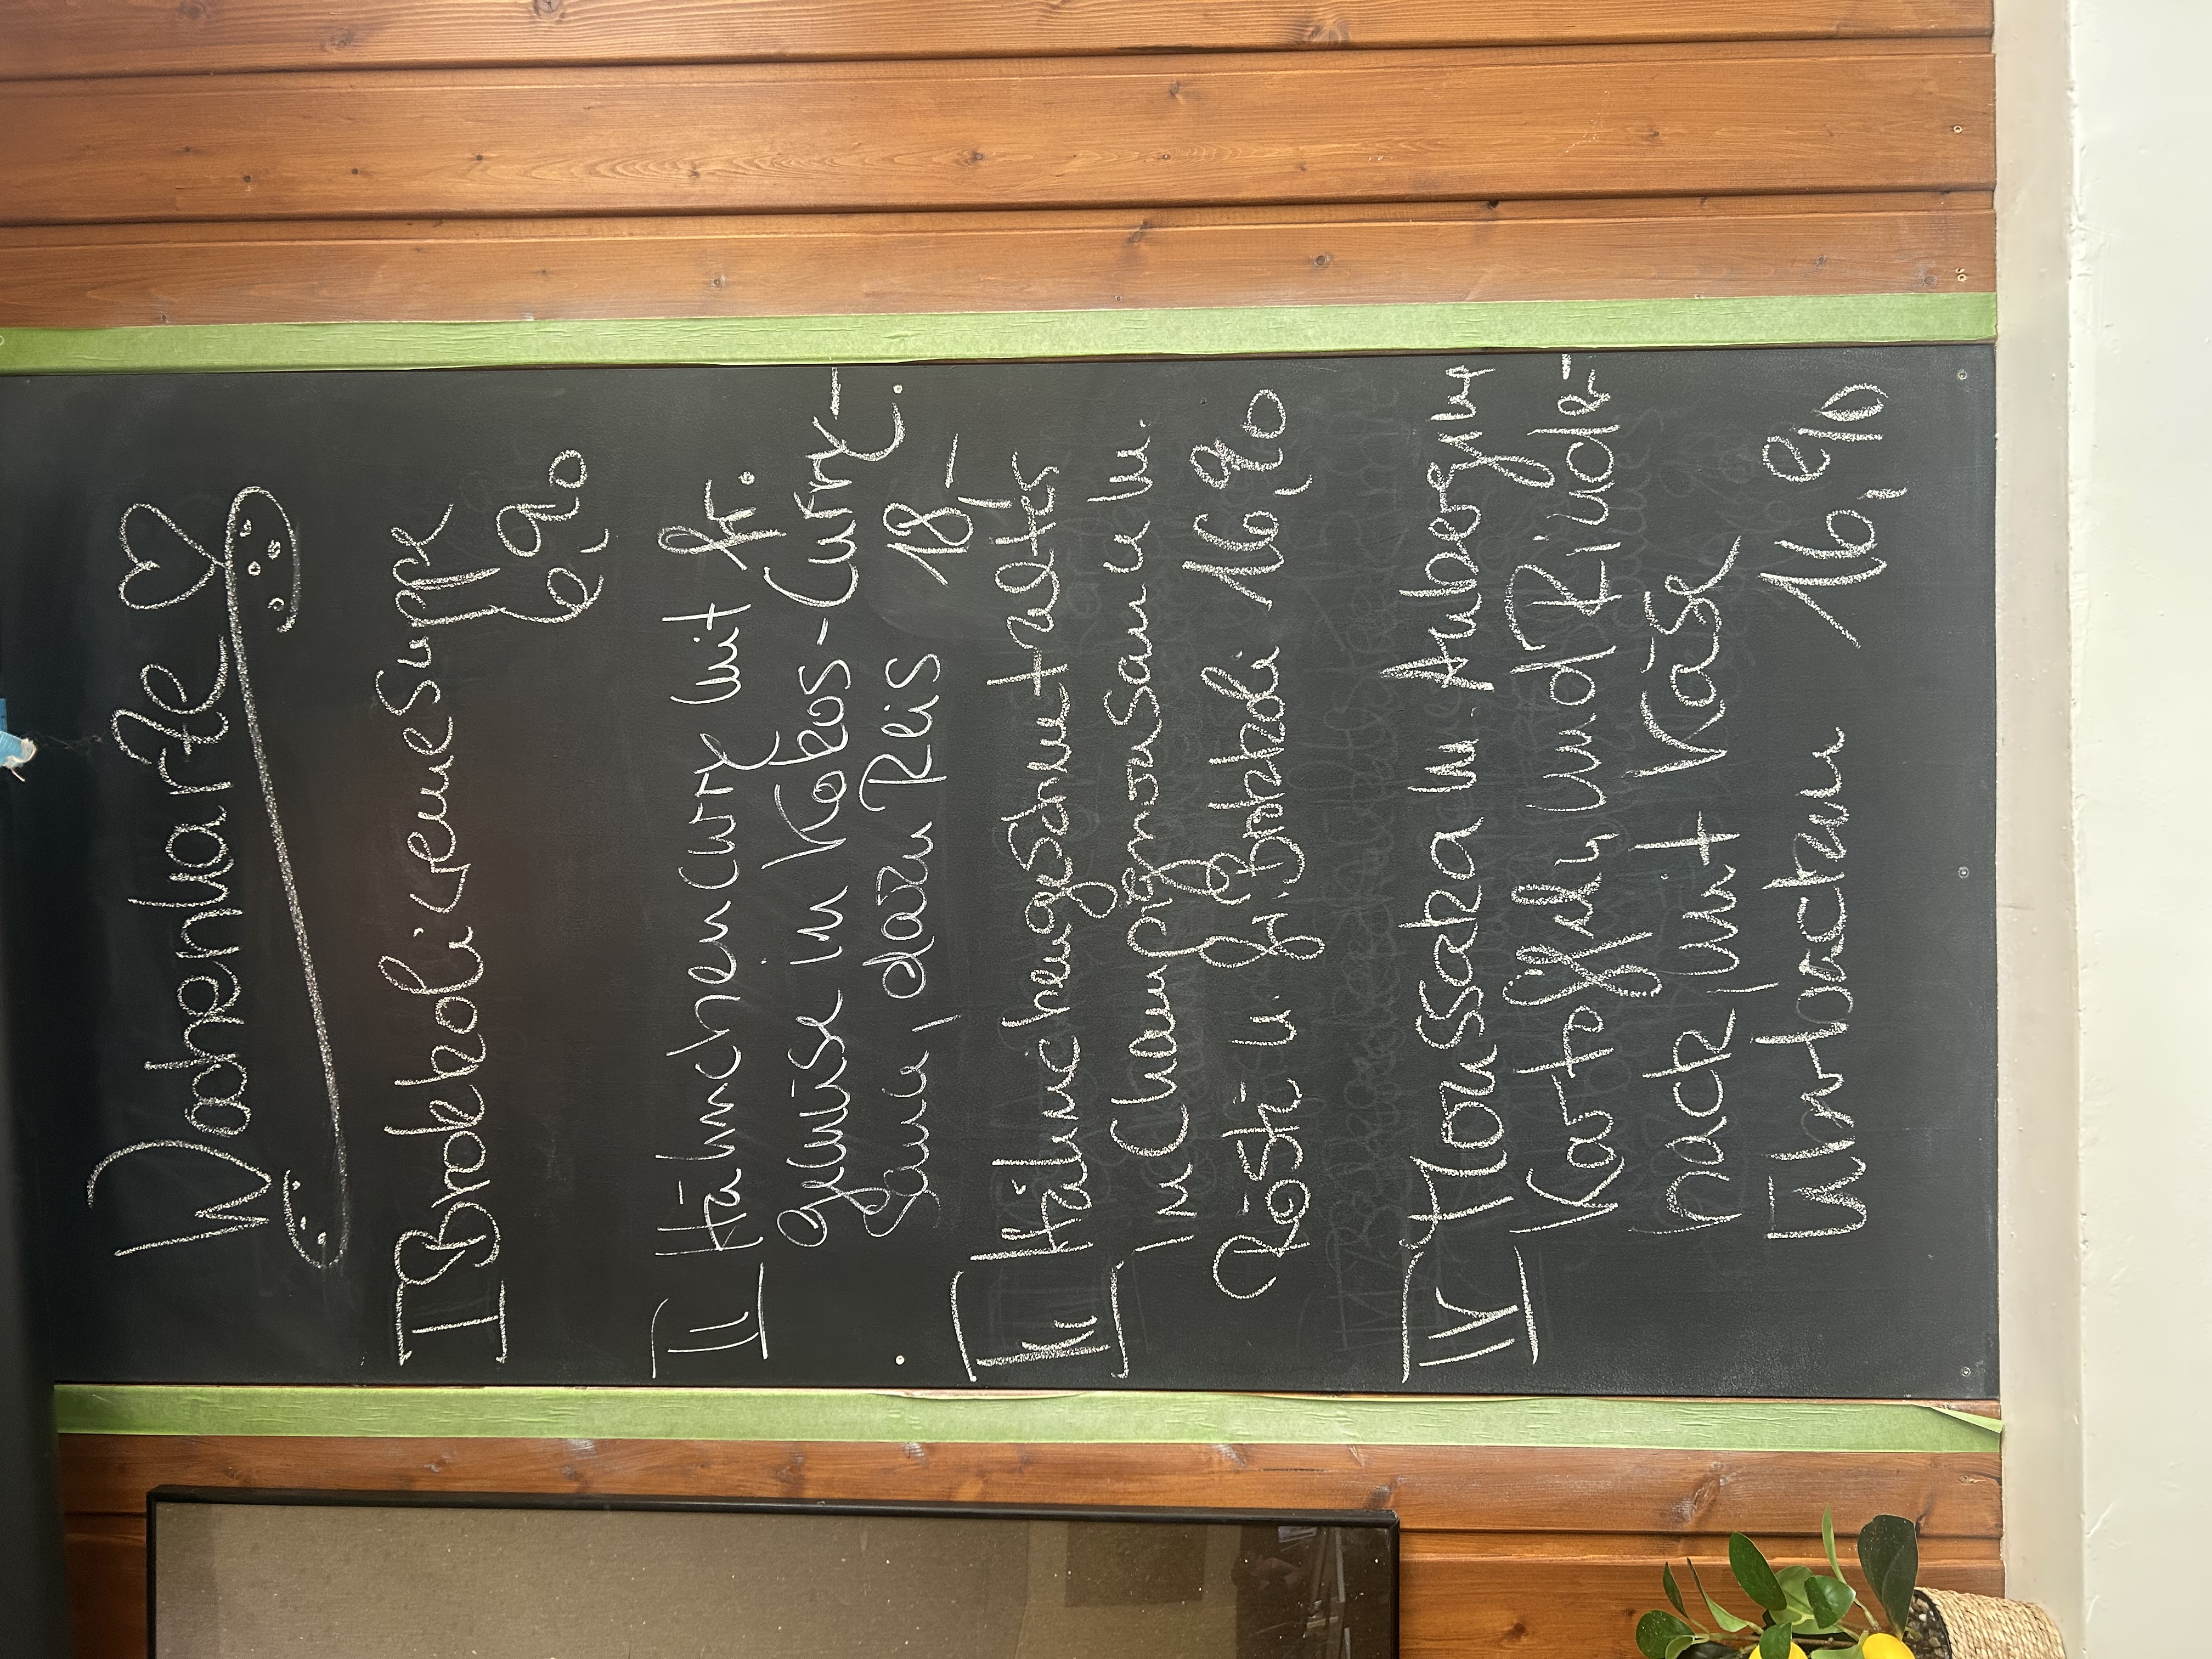 Wochenkarte
I Brokkolicremesuppe
6,90
II Hähnchencurry mit fr.
Gemüse in Kokos-Curry-
Sauce, dazu Reis 18,-
III Hähnchengeschnetzeltes
in Champignonsauce m.
Rösti u. fr. Brokkoli 16,90
IV Moussaka m. Auberginen
Kartoffeln, und Rinder-
hack, mit Käse
überbacken 16,90